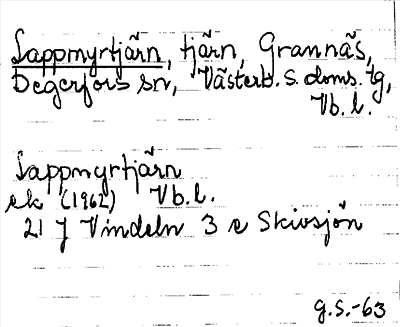 Lappmyrtjärn, tjärn, Grannäs,
Degerfors sn, Västerb. s. doms. tg,
Vb. l.
Lappmyrtjärn
ek (1962) Vb. l.
21 J Vindeln 3 e Skivsjön
g.s.-63